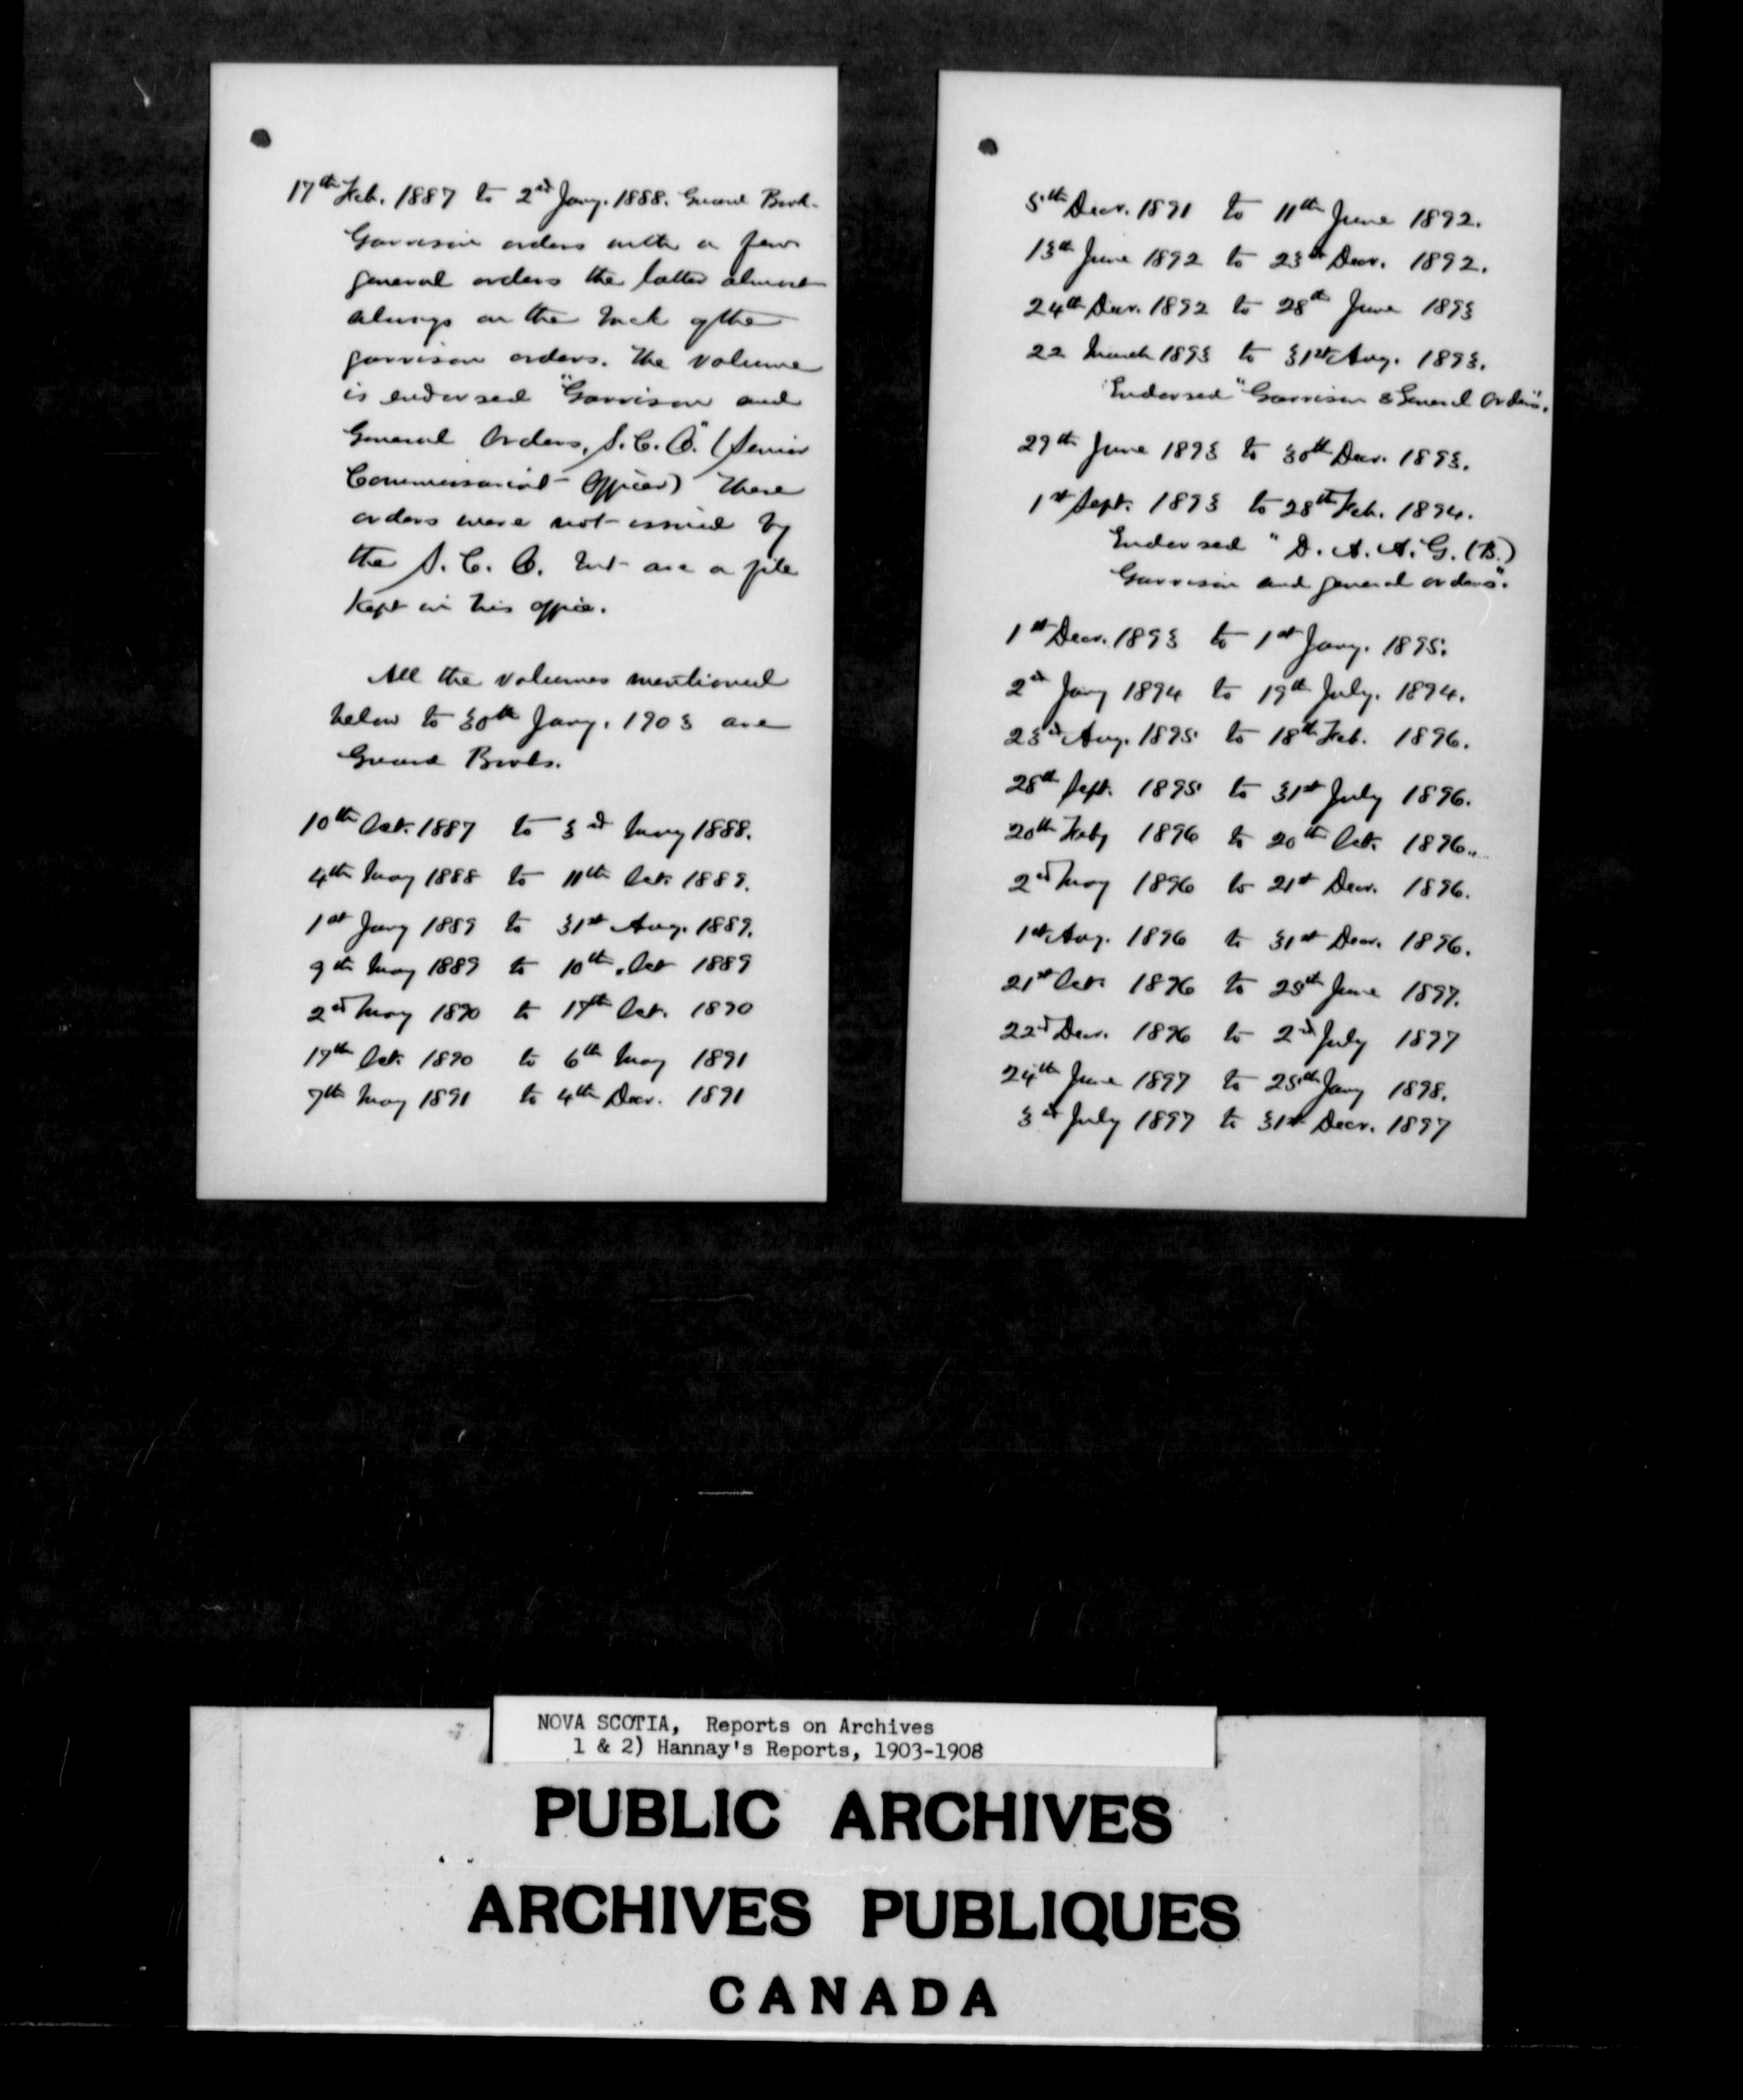 17th Feb. 1887 to 2nd Jany. 1888. Guard Book.
Garrison orders with a few
general orders the latter almost
always on the back of the
garrison orders. The volume
is endorsed "Garrison and
General Orders, S.C.O." (Senior
Commissariat Officer) These
orders were not issued by
the S.C.O. but are a file
kept in his office.
All the volumes mentioned
below to 30th Jany. 1903 are
Guard Books.
10th Oct. 1887 to 3rd May 1888.
4th May 1888 to 11th Oct. 1889.
1st Jany 1889 to 31st Aug. 1889.
9th May 1889 to 10th Oct 1889
2nd May 1890 to 17th Oct. 1890
17th Oct. 1890 to 6th May 1891
7th May 1891 to 4th Decr. 1891
5th Decr. 1891 to 11th June 1892.
13th June 1892 to 23rd Decr. 1892.
24th Decr. 1892 to 28th June 1893
22 March 1893 to 31st Aug. 1893.
Endorsed "Garrison & General Orders".
29th June 1893 to 30th Decr. 1893.
1st Sept. 1893 to 28th Feb. 1894.
Endorsed "D.A.A.G. (B.)
Garrison and general orders".
1st Decr. 1893 to 1st Jany. 1895.
2nd Jany 1894 to 19th July. 1894.
23rd Aug. 1895 to 18th Feb. 1896.
28th Sept. 1895 to 31st July 1896.
20th Feby 1896 to 20th Oct. 1896.
2nd May 1896 to 21st Decr. 1896.
1st Aug. 1896 to 31st Decr. 1896.
21st Oct. 1896 to 25th June 1897.
22nd Decr. 1896 to 2nd July 1897
24th June 1897 to 25th Jany 1898.
3rd July 1897 to 31st Decr. 1897
NOVA SCOTIA, Reports on Archives
1 & 2) Hannay's Reports, 1903-1908
PUBLIC ARCHIVES
ARCHIVES PUBLIQUES
CANADA